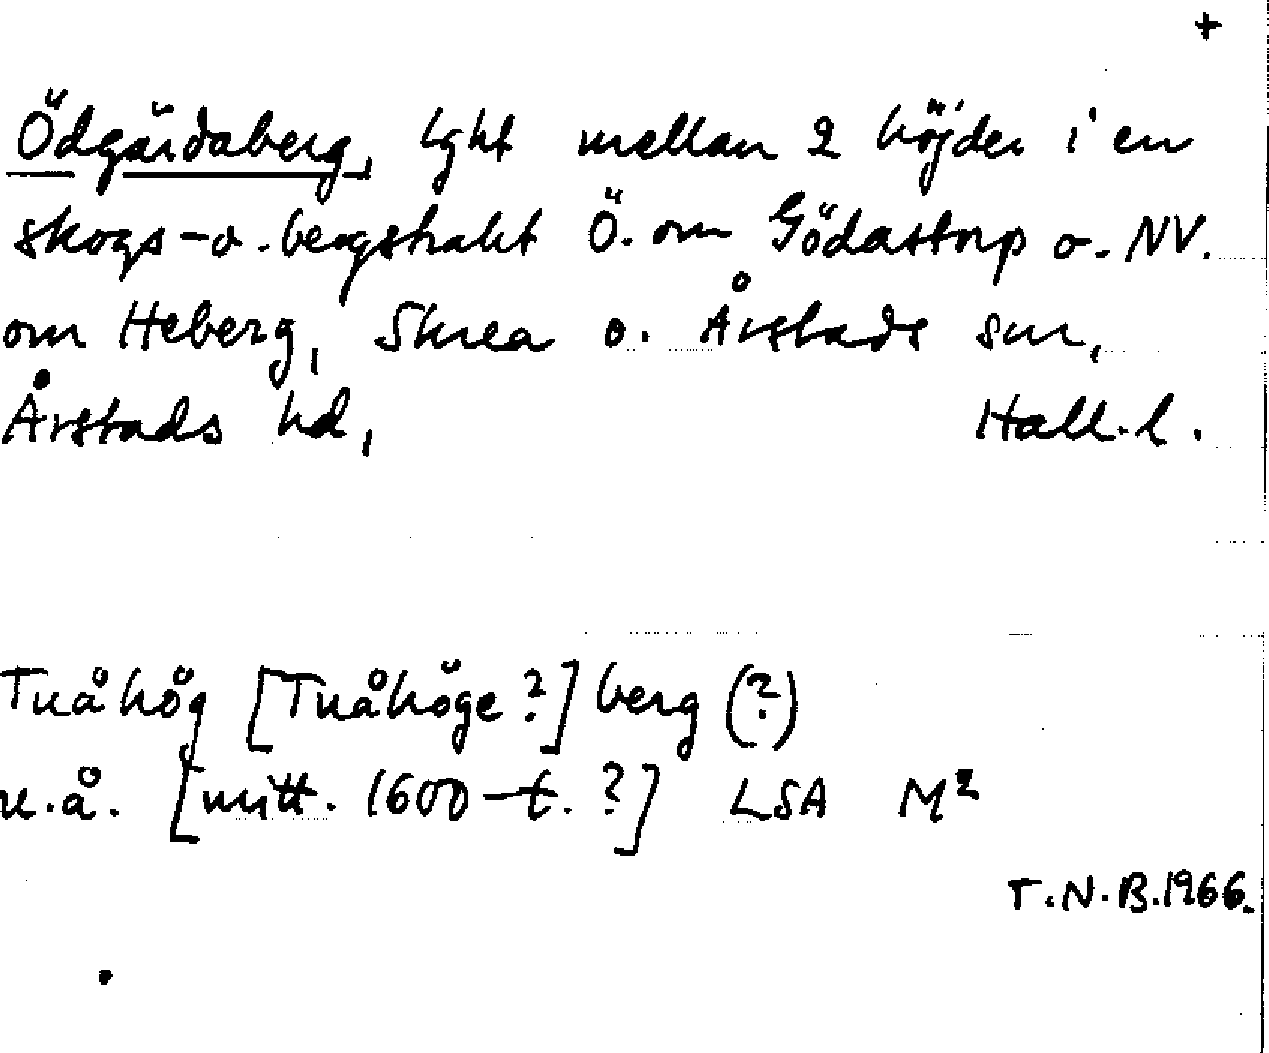 +
Ödgärdaberg, lght mellan 2 höjder i en
skogs-o.bergstrakt Ö. om Gödastorp o. NV.
om Heberg, Skrea o. Årstads snr,
Årstads hd, Hall.l.
Tuåhög [Tuåhöge ?] berg (?)
u.å. [mitt. 1600-t. ?] LSA M²
T.N.B.1966.